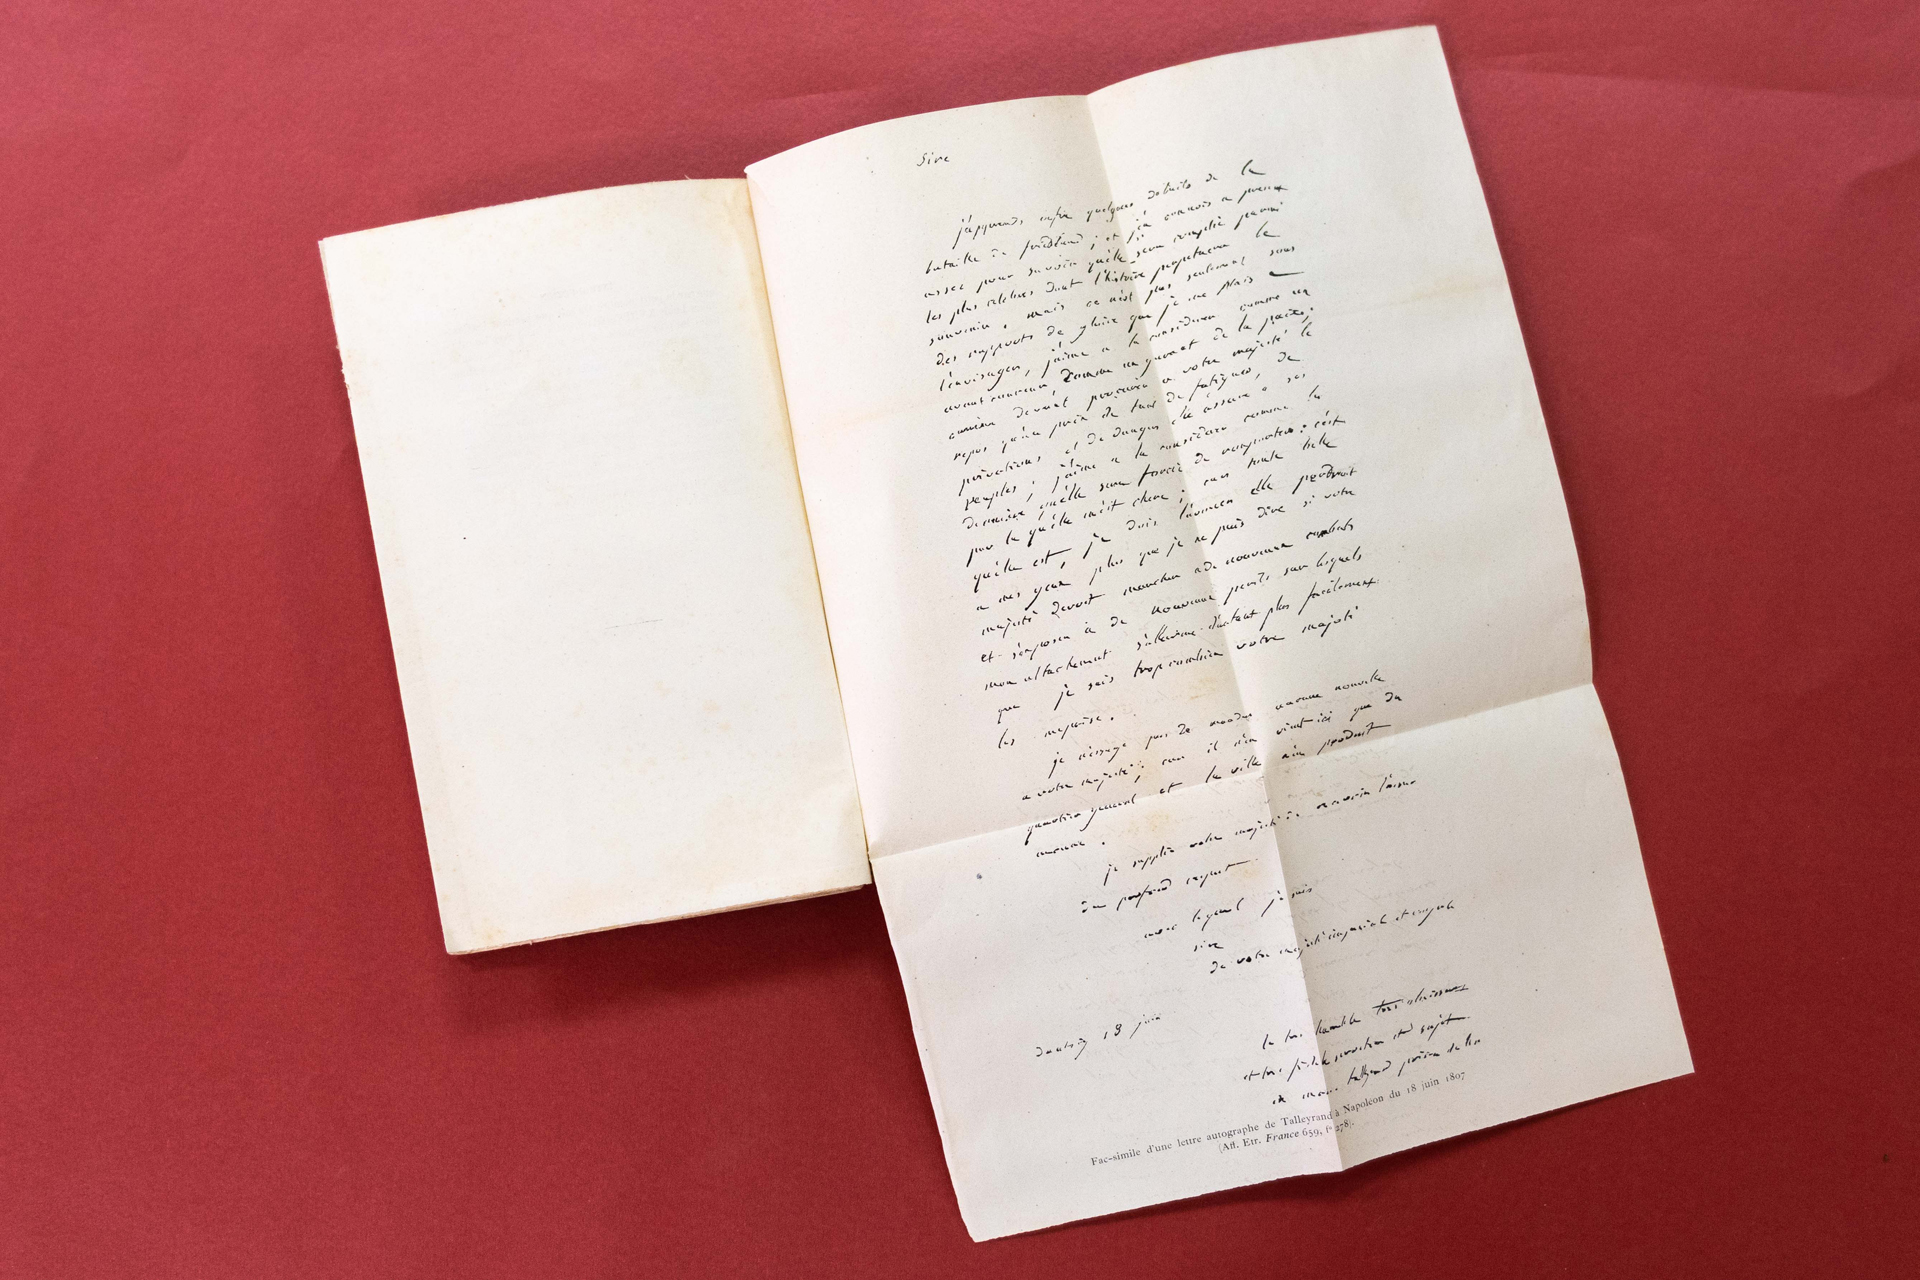 Sire
j'apprends enfin quelques détails de la
bataille de friedland ; et j'en connois a présent
assez pour savoir qu'elle sera comptée parmi
les plus célèbres dont l'histoire perpétuera le
souvenir. mais ce n'est pas seulement sous
des rapports de gloire que je me plais a
l'envisager, j'aime a la considérer comme un
avant coureur, comme un garant de la paix,
comme devant procurer a votre majesté le
repos qu'au prix de tant de fatigues, de
privations et de dangers elle assure a ses
peuples ; j'aime a la considérer comme la
dernière qu'elle sera forcée de remporter : c'est
par la qu'elle m'est chere ; car toute belle
qu'elle est, je dois l'avouer elle perdroit
a mes yeux plus que je ne puis dire si votre
majesté devoit marcher a de nouveaux combats
et s'exposer à de nouveaux perils sur lesquels
mon attachement s'allarme d'autant plus facilement
que je sais trop combien votre majesté
les méprise.
je n'essaye pas de mander aucune nouvelle
a votre majesté ; car il n'en vient ici que du
quartier general et la ville n'en produit
aucune.
je supplie votre majesté de recevoir l'
du profond respect
avec lequel je suis
sire
de votre majesté impériale et royale
dantzig 18 juin
le tres humble tres obeissant
et tres fidele serviteur et sujet
ch mau. talleyrand prince de
Fac-simile d'une lettre autographe de Talleyrand à Napoléon du 18 juin 1807
[Aff. Etr. France 659, f° 278].